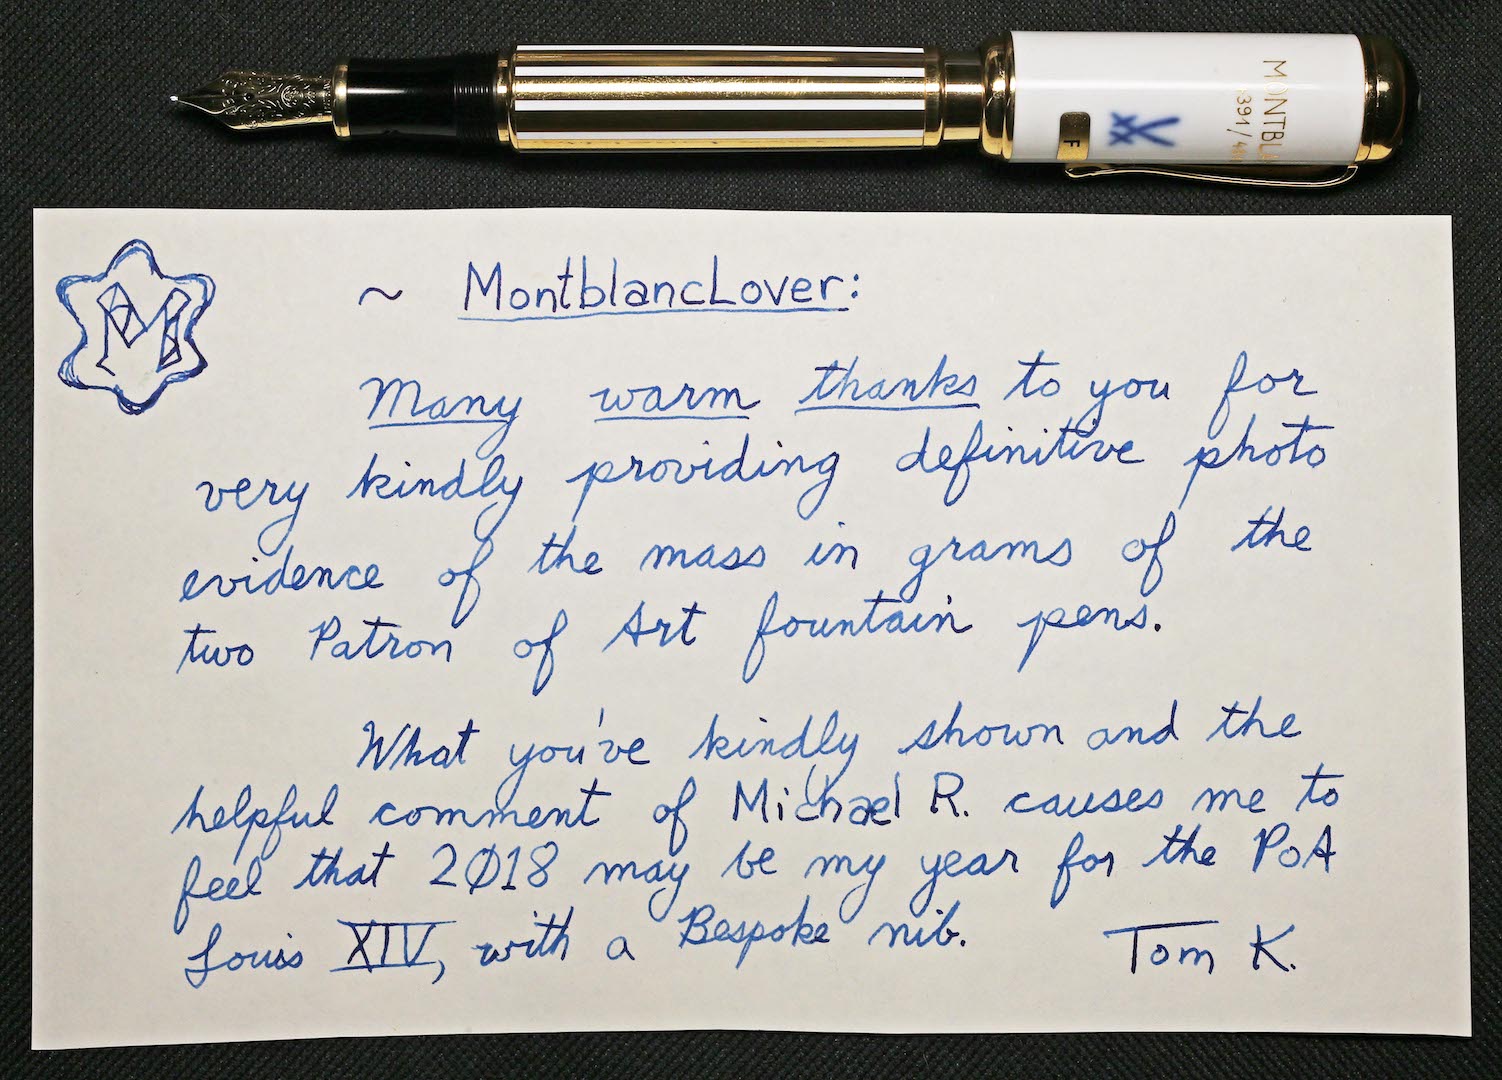 MONTBLA
391/4
F
M
~ MontblancLover:
Many warm thanks to you for
very kindly providing definitive photo
evidence of the mass in grams of the
two Patron of Art fountain pens.
What you've kindly shown and the
helpful comment of Michael R. causes me to
feel that 2Ø18 may be my year for the PoA
Louis XIV, with a Bespoke nib. Tom K.